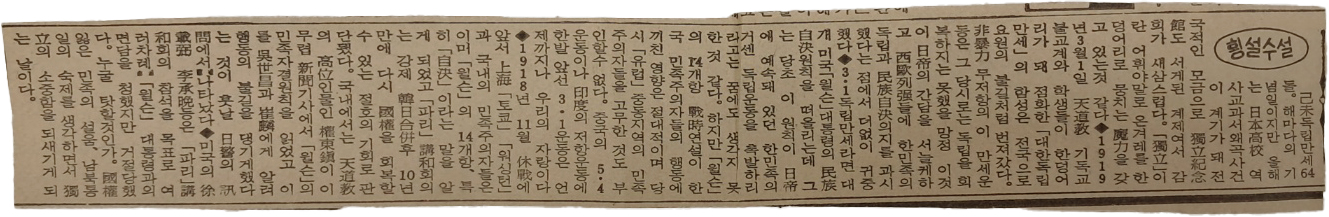 횡설수설
己未독립만세64
돌。해마다의 기
념일이지만 올해
는 日本高校 역
사교과서왜곡사건
이 계기가 돼 전
국적인 모금으로 獨立紀念
館도 서게된 계제여서 감
회가 새삼스럽다。「독립」이
란 어휘야말로 온겨레를 한
덩어리로 뭉치는 魔力을 갖
고 있는것 같다◆1919
년3월1일 天道教 기독교
불교계와 학생들이 한덩어
리가 돼 점화한 「대한독립
만세」의 함성은 전국으로
요원의 불길처럼 번져갔다。
非暴力 무저항의 이 만세운
동은 그 당장에는 독립을 회
복하지는 못했을망정 이것
이 日帝의 간담을 서늘케하
고 西歐列强들에 한민족의
독립과 民族自決의지를 과시
했다는 점에서 더없이 귀중
했다◆3·1독립만세라면 대
개 미국 「윌슨」대통령의 民族
自決원칙을 떠올리는데 그
는 당초 이 원칙이 日帝
에 예속돼 있던 한민족의
거센 독립운동을 촉발하리
라고는 꿈에도 생각지 못
한것 같다。하지만 「윌슨」
의 14개항 戰時연설이 한
국 민족주의자들의 행동에
끼친 영향은 절대적이며 당
시 「유럽」 중동지역의 민족
주의자들을 고무한것도 부
인할수 없다。중국의 5·4
운동이나 印度의 저항운동에
한발 앞선 3·1운동은 언
제까지나 우리의 자랑이다
◆1918년 11월 休戰에
앞서 上海 「토쿄」 「워싱턴」
과 국내의 민족주의자들은
이며 「윌슨」의 14개항、특
히 「自決」이라는 말을 알
게 되었고 「파리」 講和회의
는 강제 韓日合併後 10년
만에 다시 國權을 회복할
수 있는 절호의 기회로 판
단됐다。국내에서는 天道教
의 高位인물인 權東鎭이 이
무렵 新聞기사에서 「윌슨」의
민족자결원칙을 읽었고 이
를 吳世昌과 崔麟에게 알려
행동의 불길을 댕기게했다
는 것이 훗날 日警의 訊
問에서 나타났다◆미국의 徐
載弼 李承晩등은 「파리」講
和회의 참석을 목표로 여
러차례 「윌슨」 대통령과의
면담을 청했지만 거절당했
다。누굴 탓할것인가。國權
잃은 민족의 설움、남북통
일의 숙제를 생각하면서 獨
立의 소중함을 되새기게 되
는 날이다。